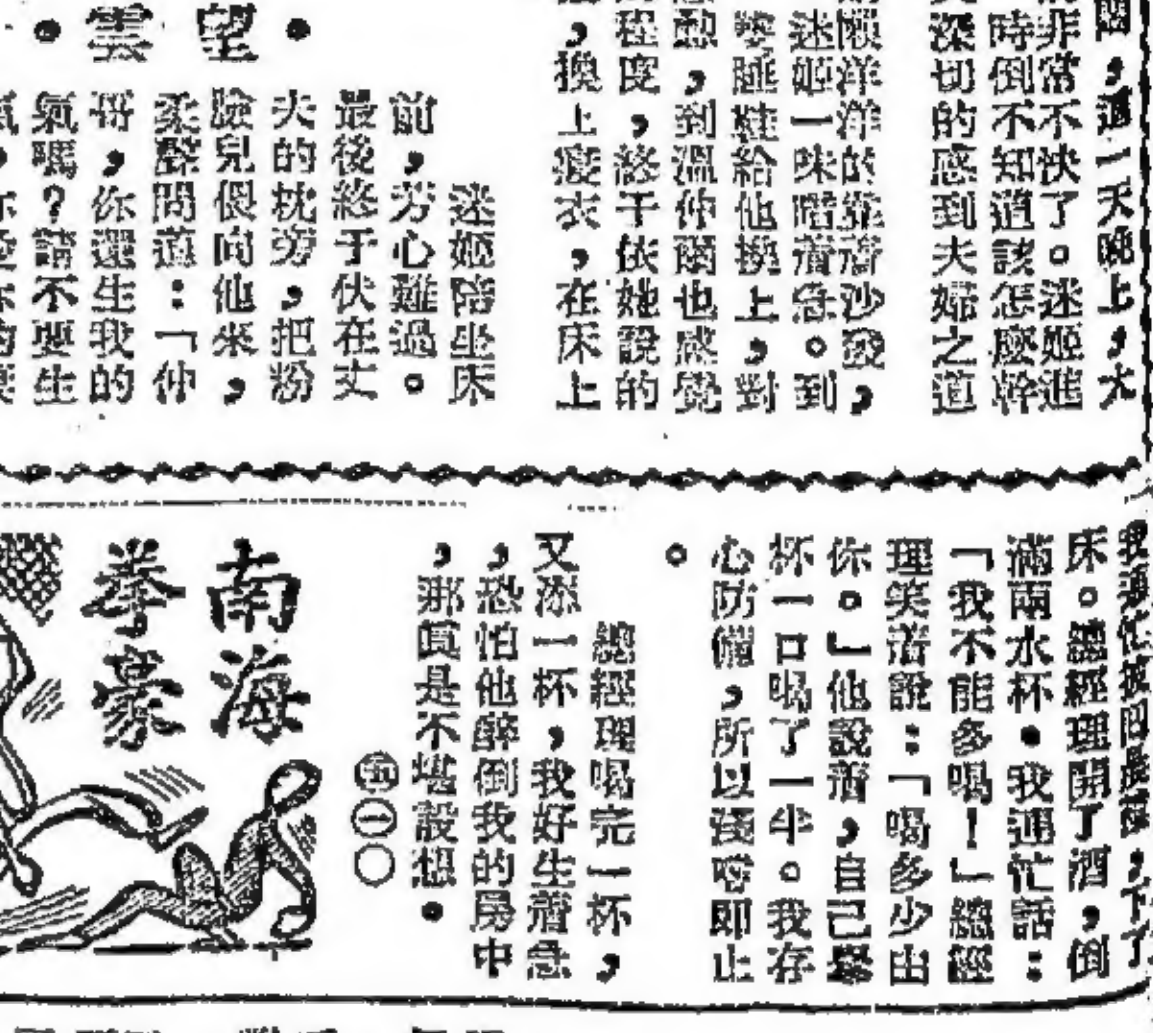 爾，這一天晚上，大
非常不快了。迷姬進
時倒不知道該怎麼幹
深切的感到夫婦之道
懶洋洋的靠着沙發，
迷姬一味暗着急。到
睡鞋給他換上，對
動，到溫仲爾也感覺
程度，終于依她說的
，換上寢衣，在床上
•望雲•
迷姬陪坐床
前，芳心難過。
最後終于伏在丈
夫的枕旁，把粉
臉兒偎向他來，
柔聲問道：「仲
哥，你還生我的
氣嗎？請不要生
床。總經理開了酒，倒
滿兩水杯。我連忙話：
「我不能多喝！」總經
理笑着說：「喝多少由
你。」他說着，自己舉
杯一口喝了一半。我存
心防備，所以淺嘗即止
。
總經理喝完一杯，
又添一杯，我好生着急
，恐怕他醉倒我的房中
，那眞是不堪設想。
㊄㊀〇
南海
拳豪